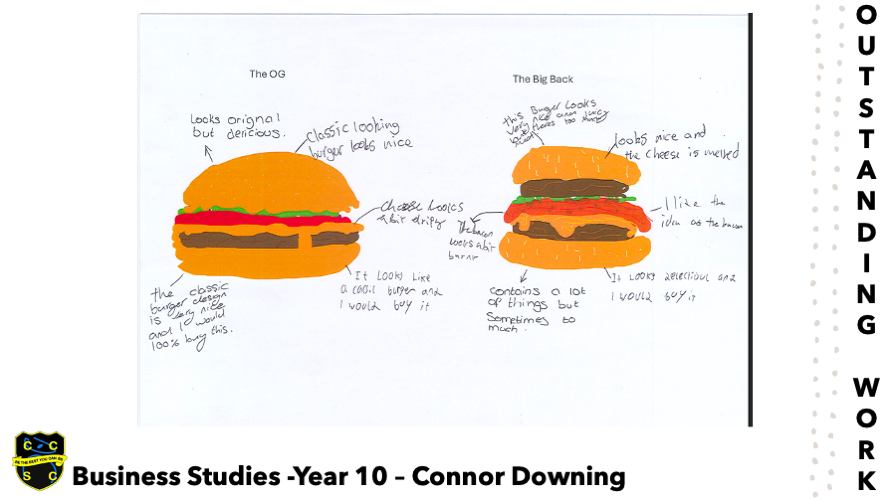 The OG
Looks orignal
but delicious.
classic looking
burger looks nice
cheese Looks
a bit dripy
It Looks Like
a cool burger and
I would buy it
the classic
burger design
is very nice
and I would
100% buy this.
The Big Back
this Burger Looks
very nice and juicy
but theres too much
looks nice and
the cheese is melted
I like the
idea of the bacon
The bacon
looks a bit
burnt
contains a lot
of things but
Sometimes to
much.
It Looks delectious and
I would buy it
OUTSTANDING WORK
C C
BE THE BEST YOU CAN BE
S C
Business Studies -Year 10 – Connor Downing